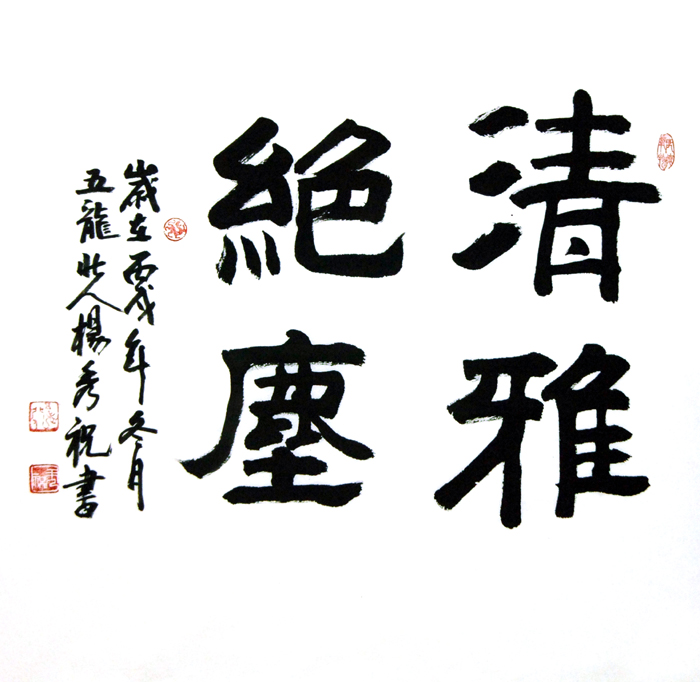 清雅
絕塵
歲在丙戌年冬月
五龍山人楊秀祝書